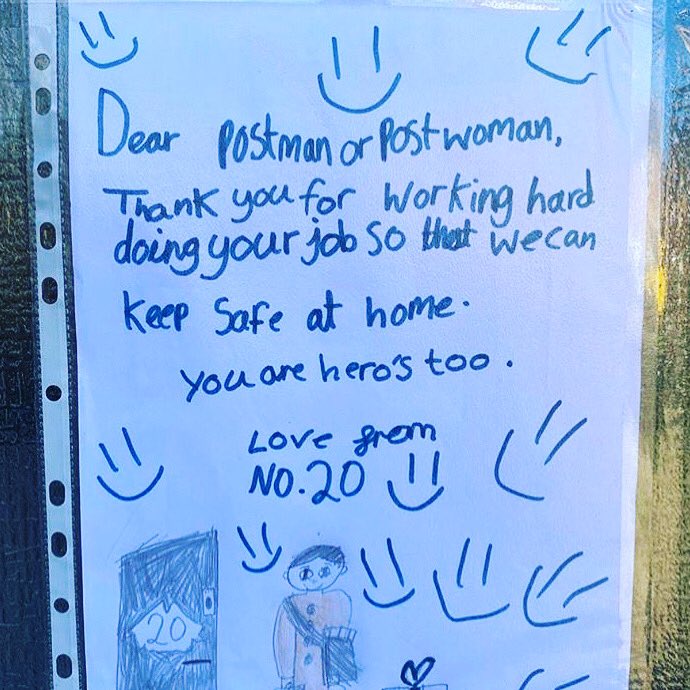 Dear Postman or Postwoman,
Thank you for Working hard
doing your job so that we can
Keep Safe at home.
you are hero's too.
Love from
NO.20
20